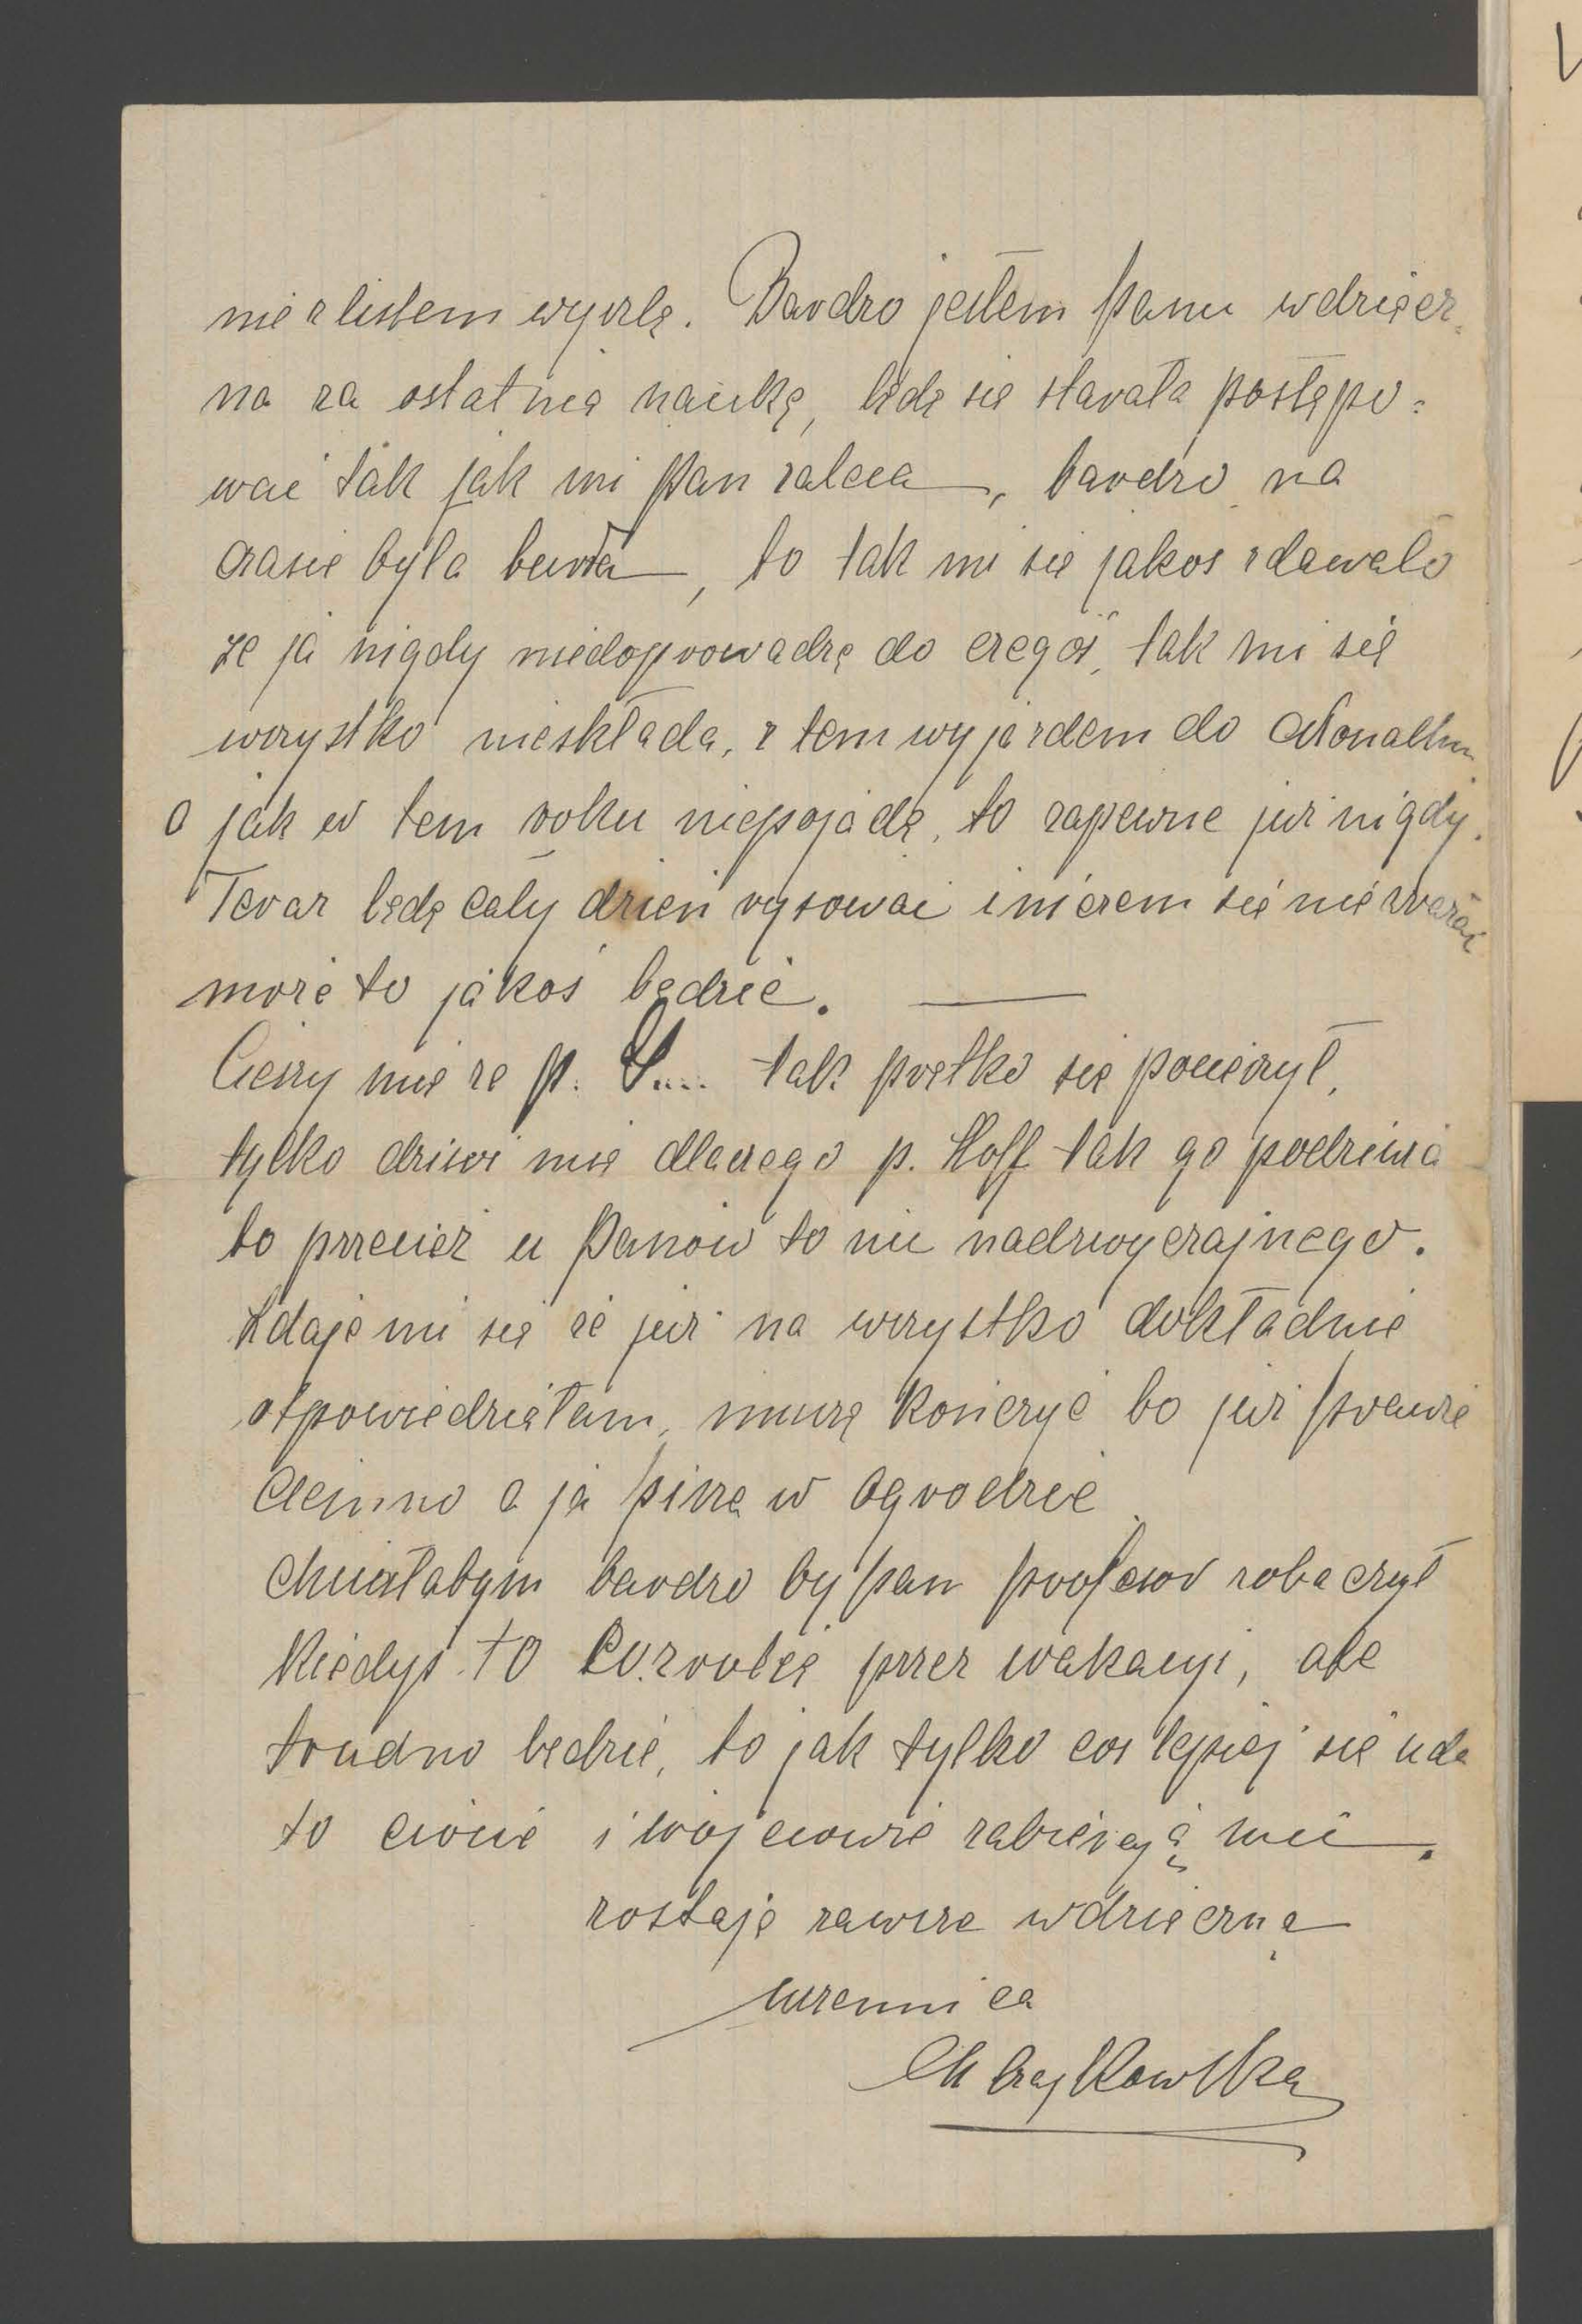 nie z listem wyszlę. Bardzo jestem Panu wdzięcz=
na za ostatnią naukę, będę się starała postępo=
wać tak jak mi Pan zaleca, bardzo na
czasie była to tak mi się jakoś zdawało
że ja nigdy niedoprowadzę do czegoś, tak mi się
wszystko nieskłada, z tem wyjazdem do Monachium
a jak w tem roku niepojadę, to zapewne już nigdy.
Teraz będę cały dzień rysować i niczem się nie zrażać
może to jakoś będzie.
Cieszy mię że p. S.... tak prętko się pocieszył,
tylko dziwi mię dlaczego p. Hoff tak go podziwia
to przecież u Panów to nic nadzwyczajnego.
Zdaje mi się że już na wszystko dokładnie
otpowiedziałam, muszę kończyć bo już prawie
ciemno a ja piszę w ogrodzie
chciałabym bardzo by pan profesor zobaczył
kiedyś to co zrobię przez wakacyi, ale
trudno będzie, to jak tylko coś lepiej się uda
to ciocie i wujciowie zabierają mi.
zostaję zawsze wdzięczną
uczennicą
M Czajkowska